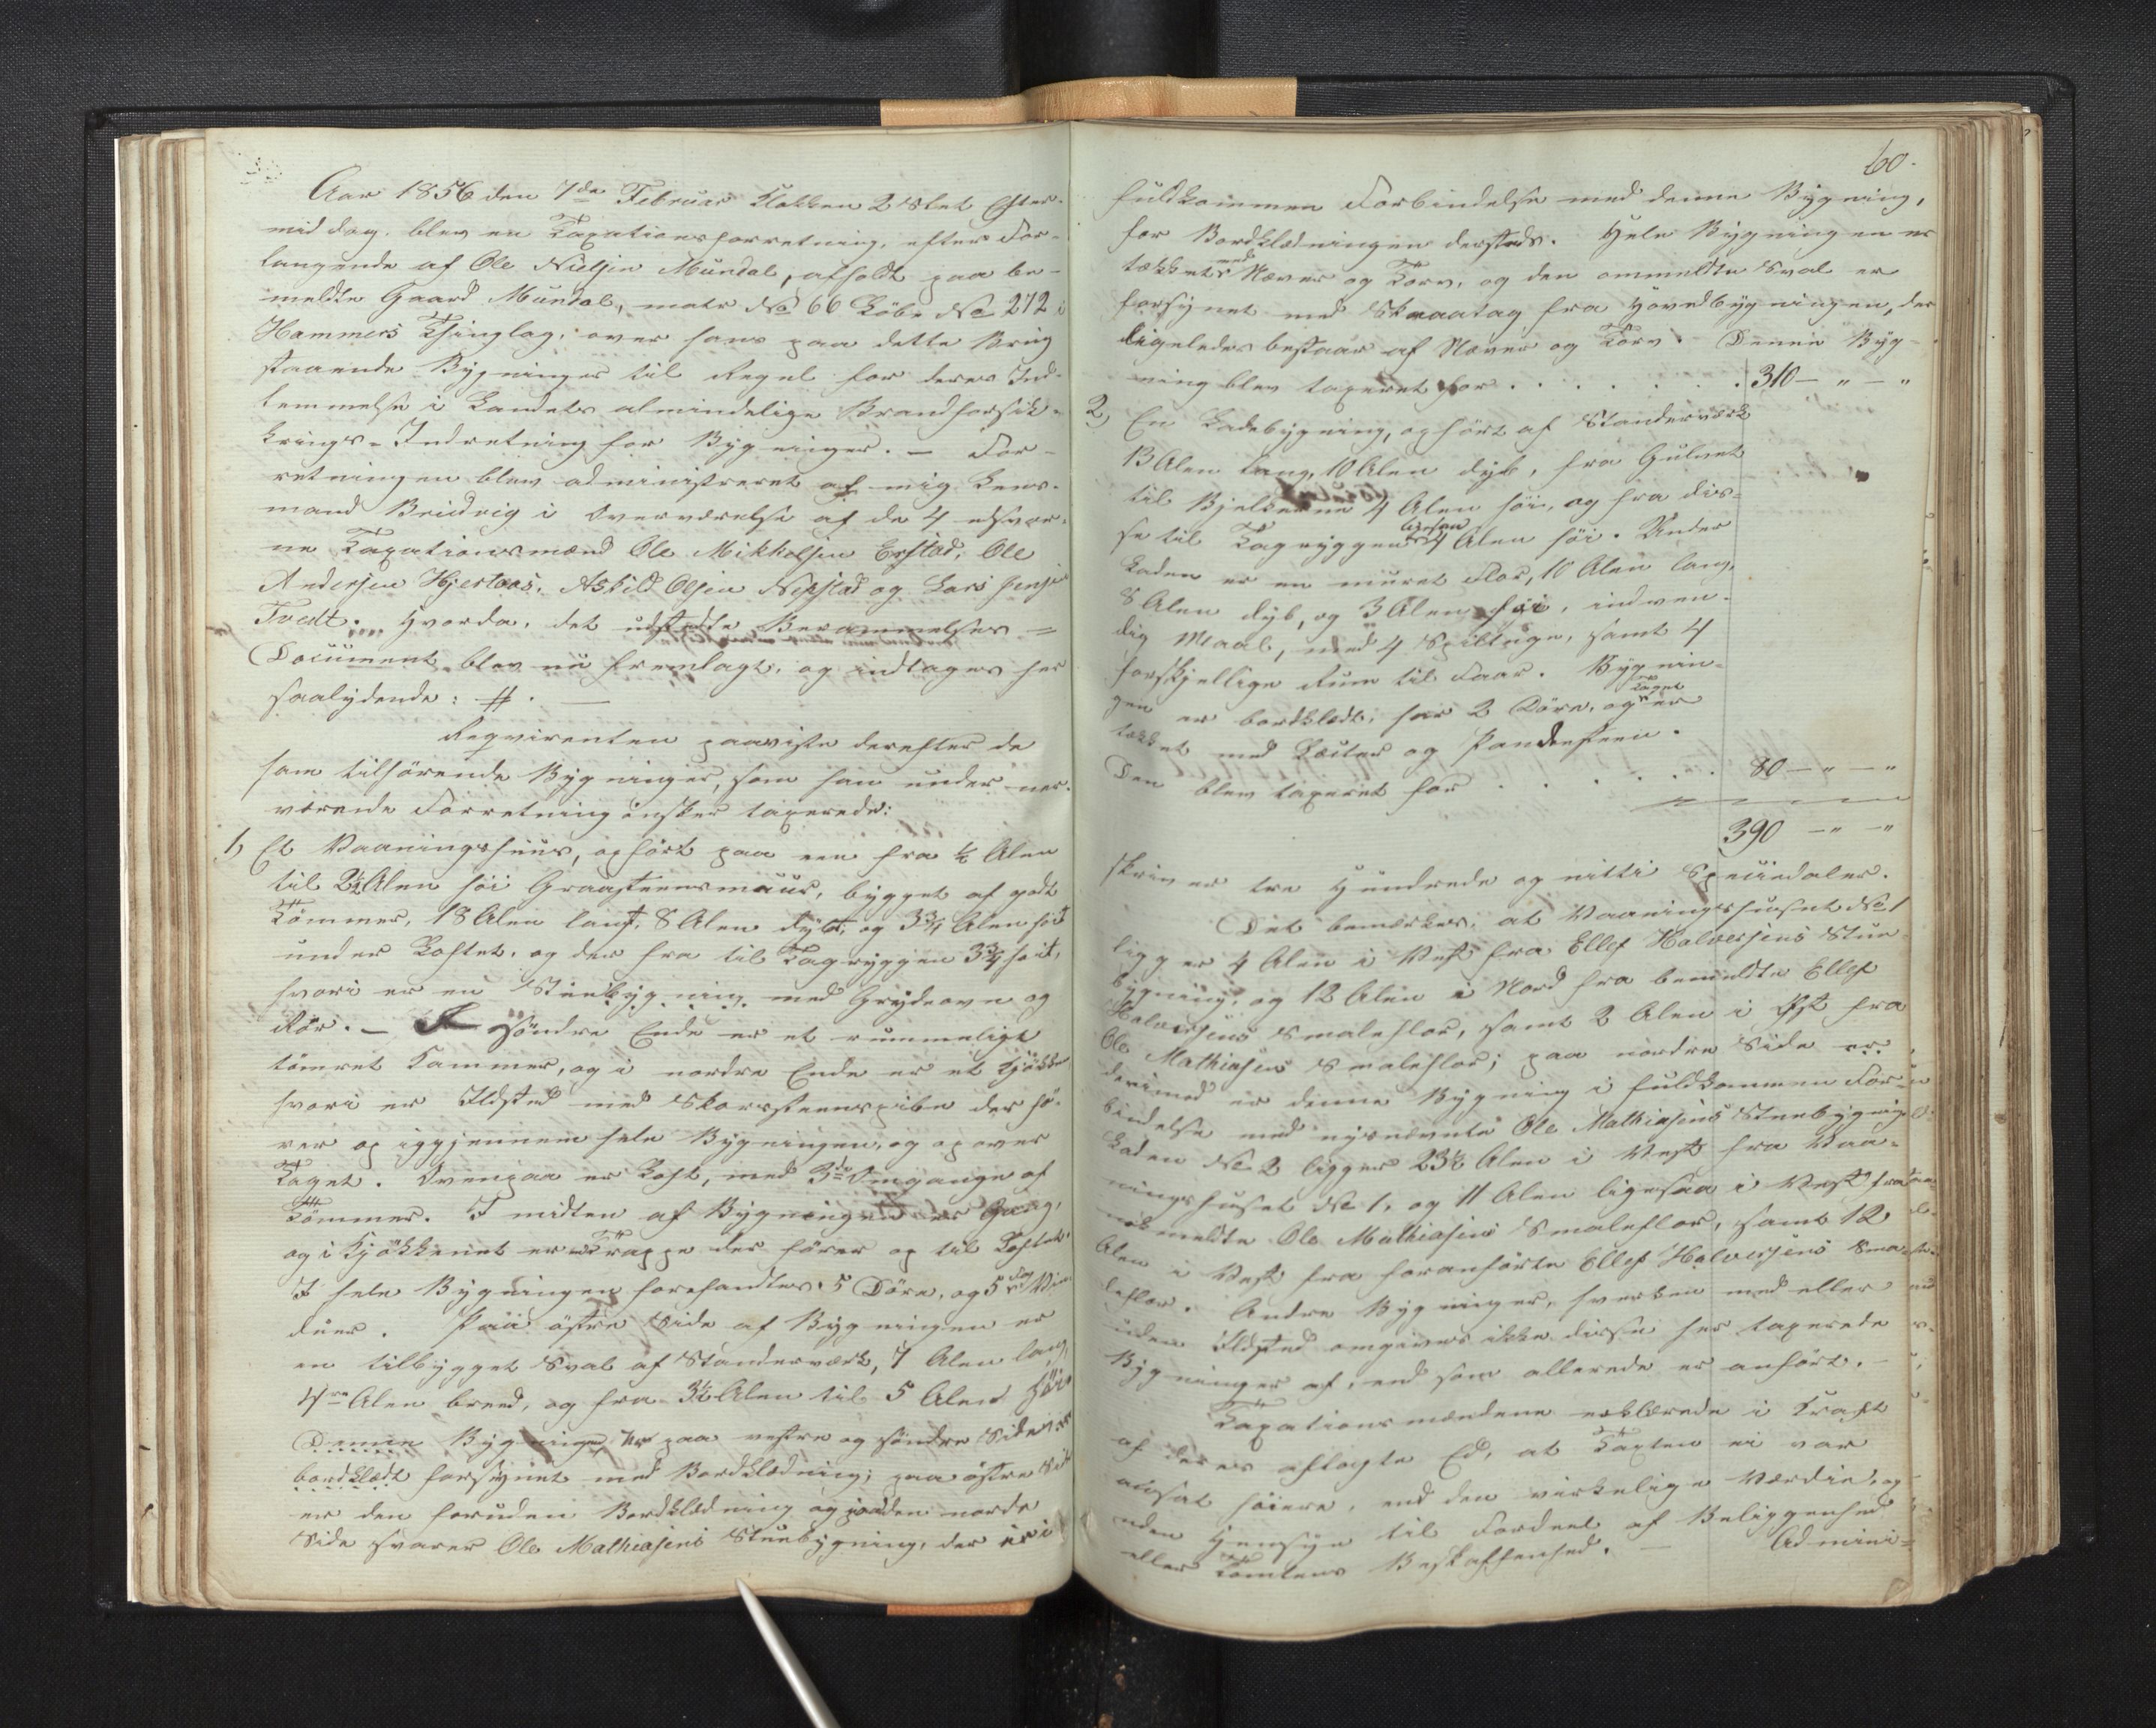 Aar 1856 den 7de Februar Klokken 2 Slet Efter-
middag, blev en Taxationsforretning, efter For-
langende af Ole Nielsen Mundal, afholdt paa be-
meldte Gaard Mundal, matr No 66 Løbe No 272 i
Hammers Thinglag, over hans paa dette Brug
staaende Bygninger til Regel for deres Ind-
lemmelse i Landets almindelige Brandforsik-
krings-Indretning for Bygninger. – For-
retningen blev administreret af mig Lens-
mand Brudvig i Overværelse af de 4 edsvor-
ne Taxationsmænd Ole Mikkelsen Erstad, Ole
Andersen Hjertaas, Askild Olsen Nepstad og Lars Jensen
Tvedt. Hvorda, det udstedte Berammelses-
Document blev nu fremlagt, og indtages her
saalydende: #. —
Reqvirenten paaviste derefter de
ham tilhørende Bygninger, som han under nær-
værende Forretning ønsker taxerede:
1, Et Vaaningshuus, opført paa een fra ½ Alen
til 2½ Alen høi Graasteensmuur, bygget af godt
Tømmer, 18 Alen langt, 8 Alen dybt, og 3¾ Alen høit
under Loftet, og der fra til Tagryggen 3¾ høit,
hvori er en Stuebygning med Grydeovn og
Rør. – I søndre Ende er et rummeligt
tømret Kammer, og i nordre Ende er et Kjøkken
hvori er Ildsted med Skorsteenspibe der fø-
rer op igjennem hele Bygningen, og op over
Taget. Ovenpaa er Loft, med 3de Omgange af
Tømmer. I midten af Bygningen er Gang,
og i Kjøkkenet er Trappe der fører op til Loftet.
I hele Bygningen forefandtes 5 Døre, og 5 Fag Vin-
duer. Paa østre Side af Bygningen er
en tilbygget Sval af Standerværk, 7 Alen lang,
4re Alen breed, og fra 3½ Alen til 5 Alen høi
Denne Bygning er paa vestre og søndre Side
bordklædt forsynet med Bordklædning; paa østre Side
er den foruden Bordklædning og paa den nordre
Side svarer Ole Mathiasens Stuebygning, der er i
60.
fuldkommen Forbindelse med denne Bygning,
for Bordklædningen dersteds. Hele Bygningen er
tækket med Næver og Torv, og den ommeldte Sval er
forsynet med Skraatag fra Hovedbygningen, der
ligeledes bestaar af Næver og Torv. Denne Byg-
ning blev taxeret for . . . . . . . 310 – " – "
2, En Ladebygning, opført af Standerværk
13 Alen lang, 10 Alen dyb, fra Gulvet
til Bjelkerne 4 Alen høi, og fra dis-
se til Tagryggen ligesaa 4 Alen høi. Under
Laden er en muret Flor, 10 Alen lang,
8 Alen dyb, og 3 Alen høi, indven-
dig Maal, med 4 Spiltuge, samt 4
forskjellige Rum til Faar. Bygnin-
gen er bordklædt, har 2 Døre, og Taget er
tækket med Lægter og Pandesteen.
Den blev taxeret for . . . . . 80 – " – "
390 – " – "
skriver tre Hundrede og nitti Speciedaler.
Det bemærkes, at Vaaningshuset No 1
ligger 4 Alen i Vest fra Ellef Halversens Stue-
bygning, og 12 Alen i Nord fra bemeldte Ellef
Halversens Smaleflor, samt 2 Alen i Øst fra
Ole Mathiasens Smaleflor; paa nordre Side er
derimod er denne Bygning i fuldkommen For-
bindelse med nysnævnte Ole Mathiasens Stuebygning
Laden No 2 ligger 23½ Alen i Vest fra Vaa-
ningshuset No 1, og 11 Alen ligesaa i Vest fra
meldte Ole Mathiasens Smaleflor, samt 12
Alen i Vest fra foranførte Ellef Halversens Sma-
leflor. Andre Bygninger, hverken med eller
uden Ildsted omgives ikke disse her taxerede
Bygninger af, end som allerede er anført. –
Taxationsmændene erklærede i Kraft
af deres aflagte Ed, at Taxten ei var
ansat høiere, end den virkelige Værdie, og
uden Hensyn til Fordeel af Beliggenhed
eller Tomtens Beskaffenhed. – Admini-